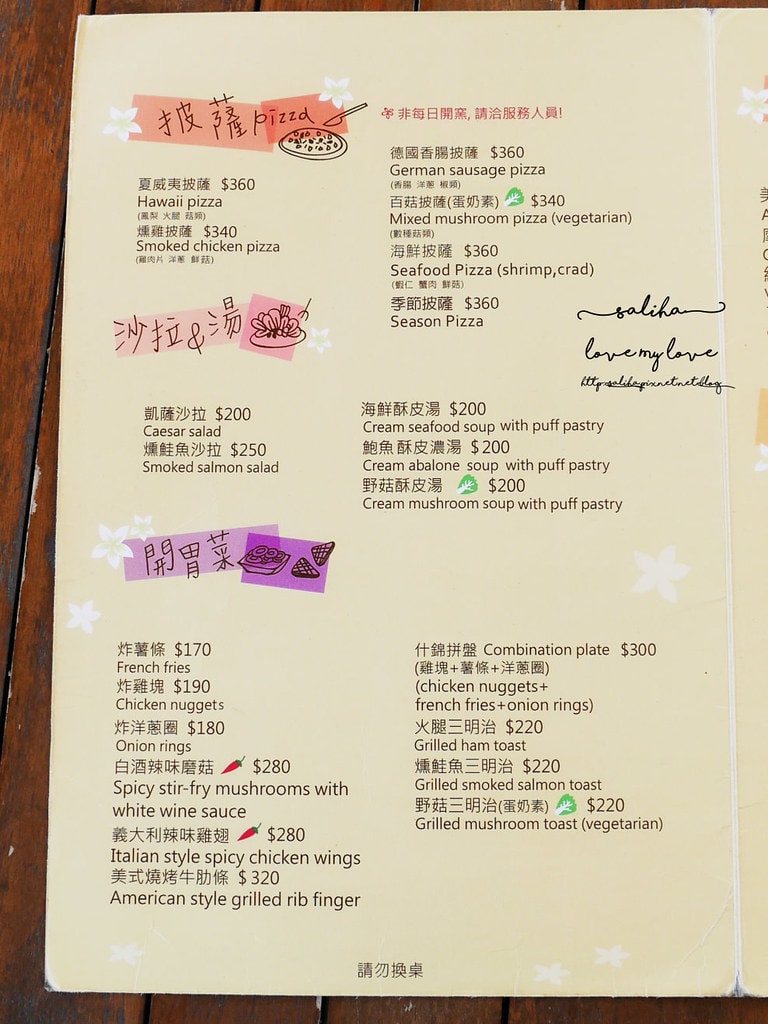 披薩 pizza
非每日開窯, 請洽服務人員!
夏威夷披薩 $360
Hawaii pizza
(鳳梨 火腿 菇類)
燻雞披薩 $340
Smoked chicken pizza
(雞肉片 洋蔥 鮮菇)
德國香腸披薩 $360
German sausage pizza
(香腸 洋蔥 椒類)
百菇披薩(蛋奶素) $340
Mixed mushroom pizza (vegetarian)
(數種菇類)
海鮮披薩 $360
Seafood Pizza (shrimp,crad)
(蝦仁 蟹肉 鮮菇)
季節披薩 $360
Season Pizza
saliha
love my love
http:saliha.pixnet.net.blog
沙拉&湯
凱薩沙拉 $200
Caesar salad
燻鮭魚沙拉 $250
Smoked salmon salad
海鮮酥皮湯 $200
Cream seafood soup with puff pastry
鮑魚酥皮濃湯 $200
Cream abalone soup with puff pastry
野菇酥皮湯 $200
Cream mushroom soup with puff pastry
開胃菜
炸薯條 $170
French fries
炸雞塊 $190
Chicken nuggets
炸洋蔥圈 $180
Onion rings
白酒辣味磨菇 $280
Spicy stir-fry mushrooms with
white wine sauce
義大利辣味雞翅 $280
Italian style spicy chicken wings
美式燒烤牛肋條 $320
American style grilled rib finger
什錦拼盤 Combination plate $300
(雞塊+薯條+洋蔥圈)
(chicken nuggets+
french fries+onion rings)
火腿三明治 $220
Grilled ham toast
燻鮭魚三明治 $220
Grilled smoked salmon toast
野菇三明治(蛋奶素) $220
Grilled mushroom toast (vegetarian)
請勿換桌